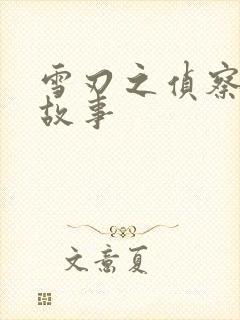 雪刃之偵察
故事
文意夏